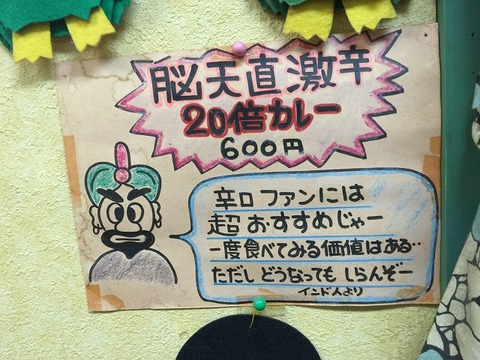 脳天直激辛
20倍カレー
600円
辛口ファンには
超おすすめじゃー
一度食べてみる価値はある‥
ただしどうなってもしらんぞー
インド人より